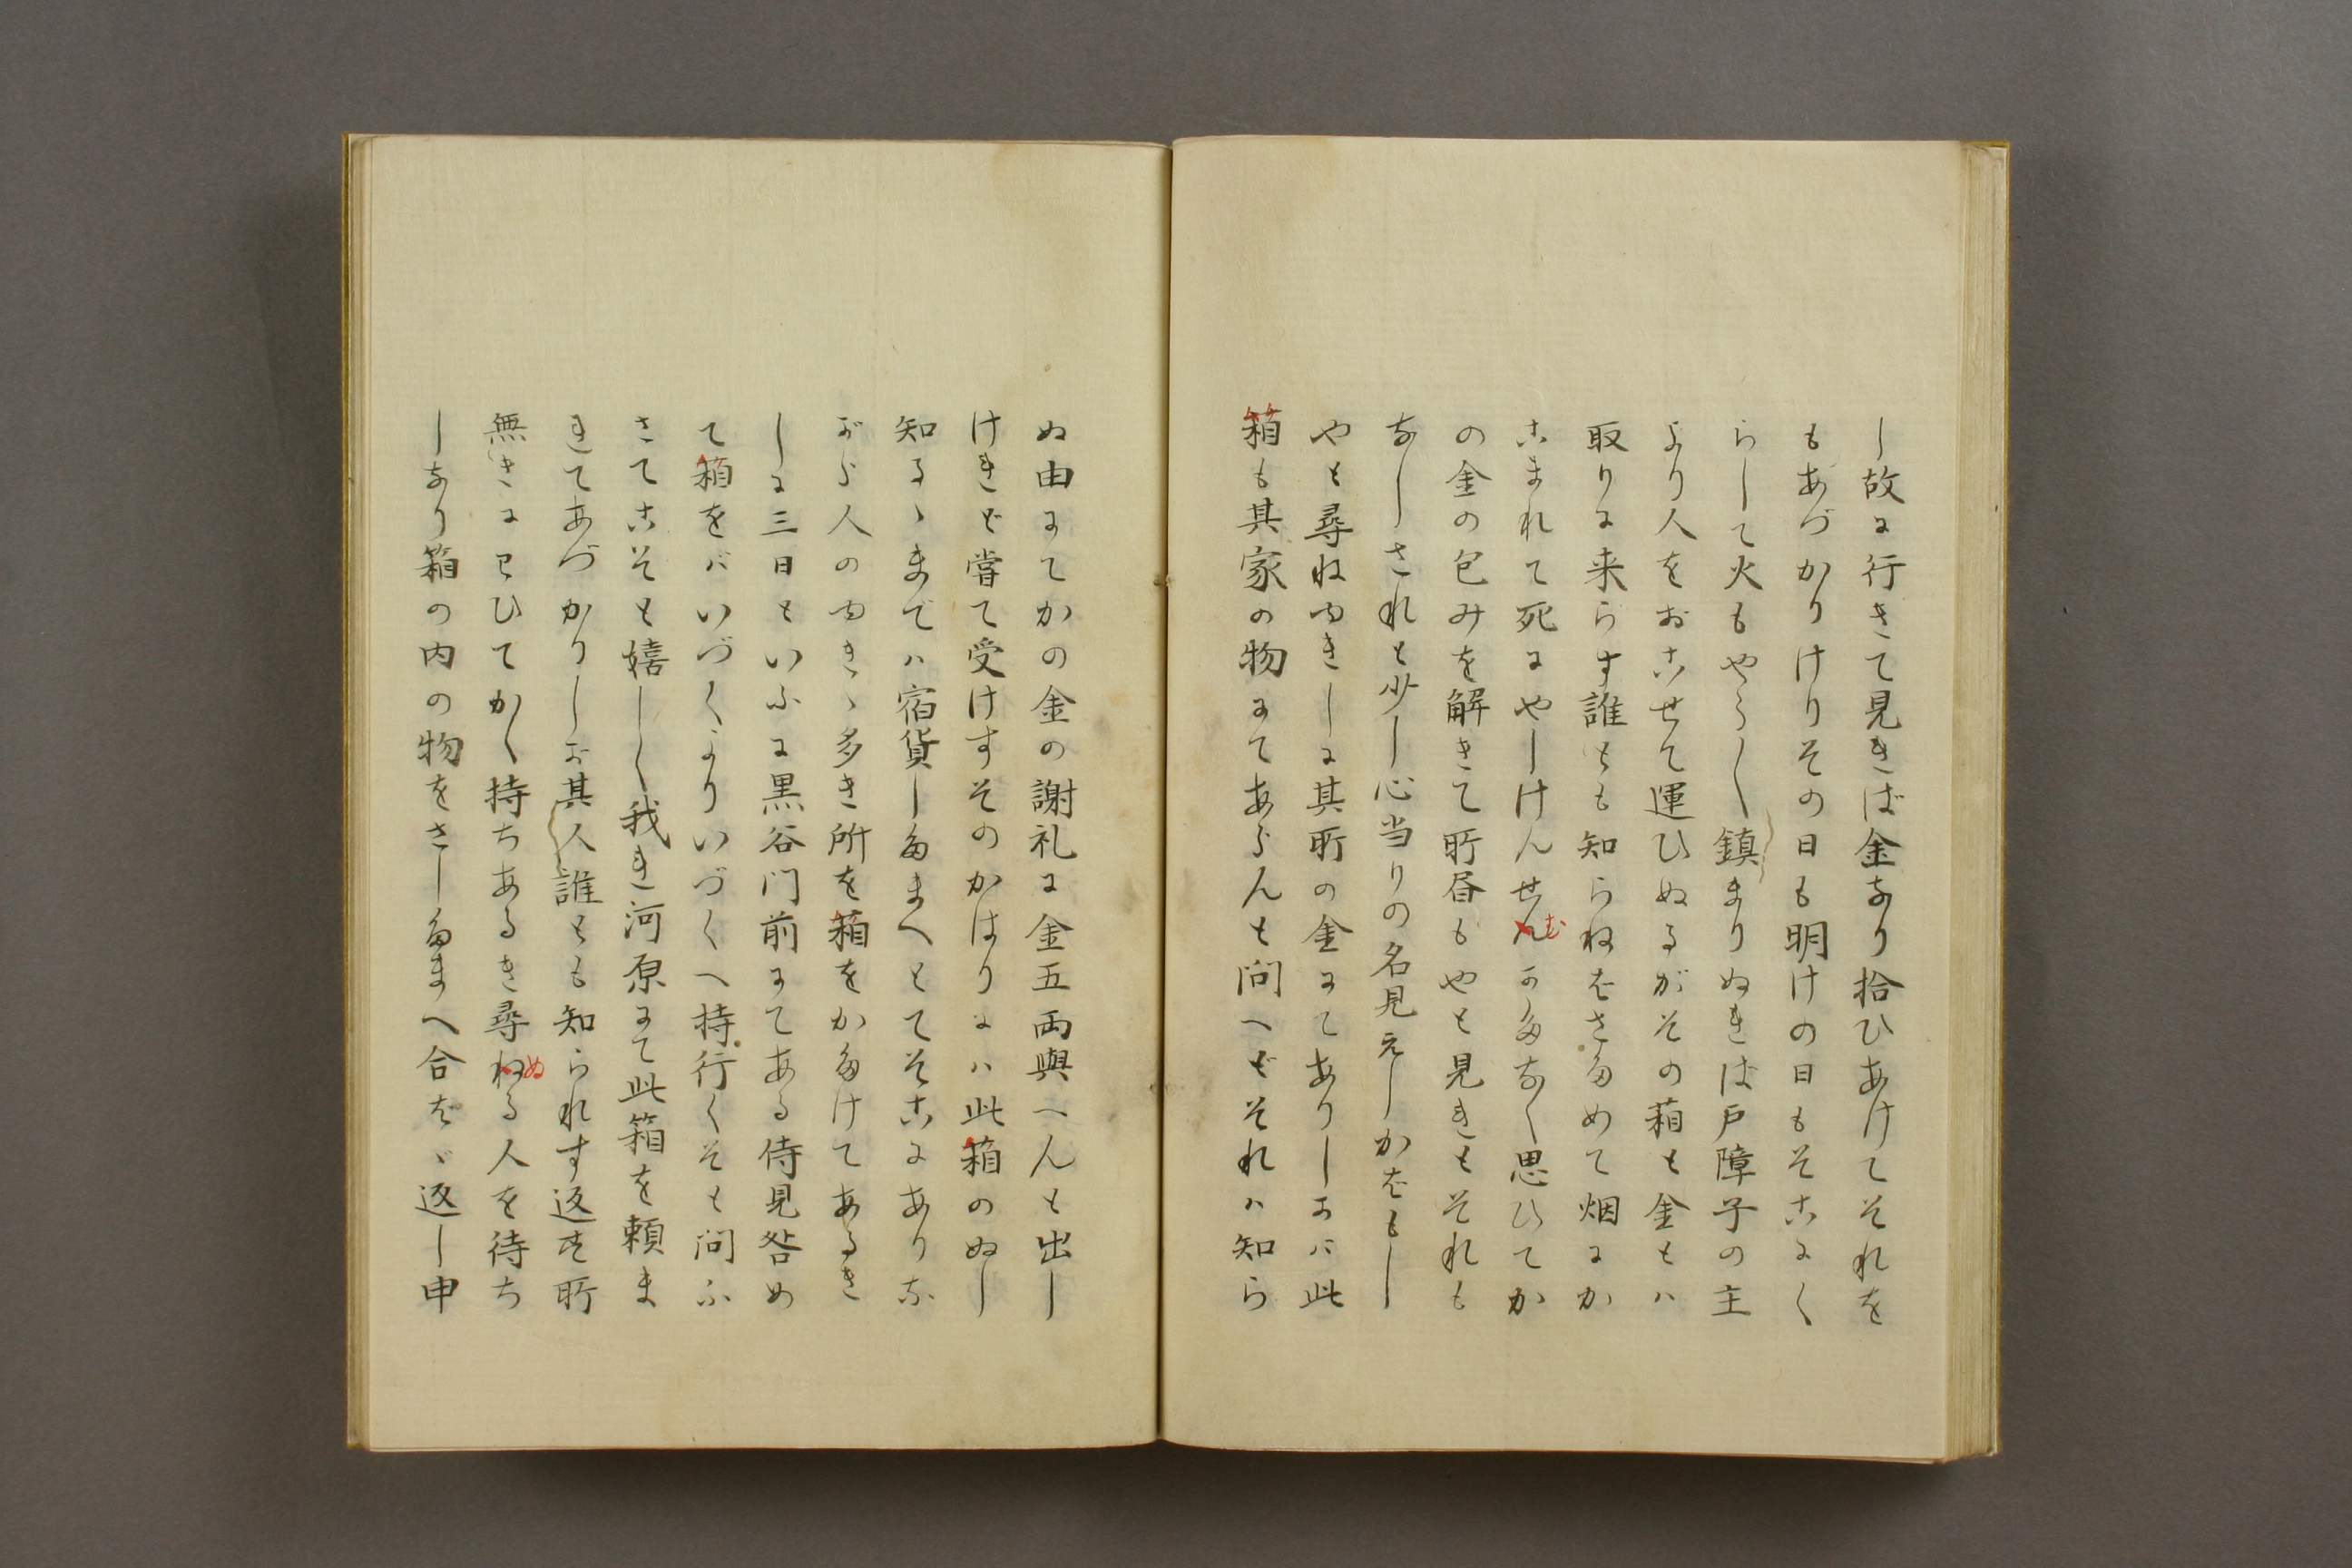 し故に行きて見れば金なり拾ひあけてそれを
もあづかりけりその日も明けの日もそこにく
らして火もやう〳〵鎮まりぬれは戸障子の主
より人をおこせて運ひぬるがその箱と金とハ
取りに来らす誰とも知らねばさためて烟にか
こまれて死にやしけんせむかたなく思ひてか
の金の包みを解きて所昏もやと見れとそれも
なしされと少し心当りの名見えしかばもし
やと尋ねゆきしに其所の金にてありしかバ此
箱も其家の物にてあらんと問へどそれハ知ら
ぬ由にてかの金の謝礼に金五両與へんと出し
けれど嘗て受けすそのかはりにハ此箱のぬし
知るゝまでハ宿貸したまへとてそこにありな
がら人のゆきゝ多き所を箱をかたけてあるき
しに三日といふに黒谷門前にてある侍見咎め
て箱をバいづくよりいづくへ持行くそと問ふ
さてこそと嬉しく我れ河原にて此箱を頼ま
れてあづかりしが其人誰とも知られす返す所
無きにわひてかく持ちあるき尋ぬる人を待ち
しなり箱の内の物をさしたまへ合はゞ返し申